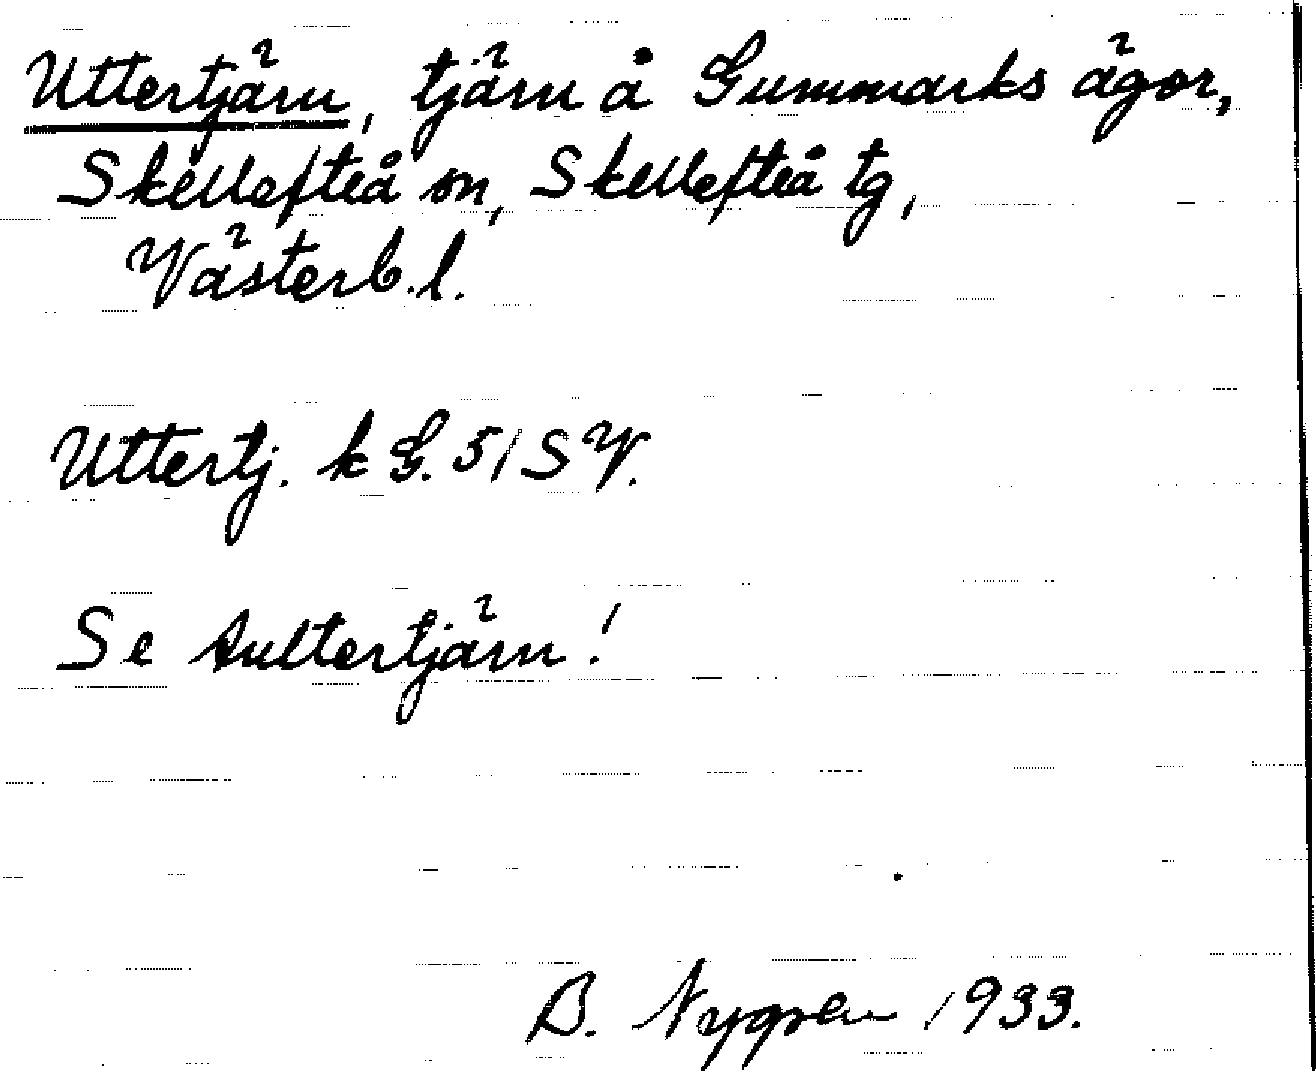 Uttertjärn, tjärn å Gummarks ägor,
Skellefteå sn, Skellefteå tg,
Västerb. l.
Uttertj. k G. 51 SV.
Se Aultertjärn!
B. Nygren 1933.